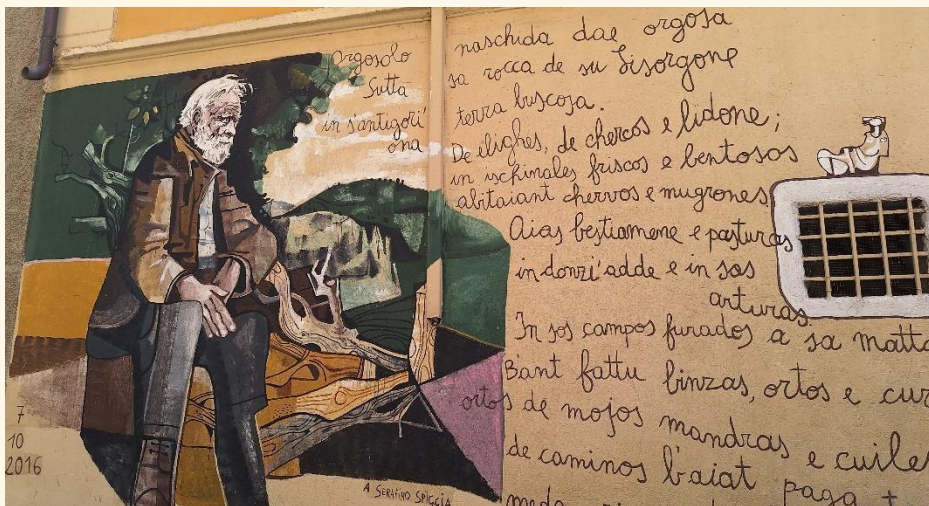 Orgosolo
Sutta
in s'antigori'
ona
naschida dae orgosa
sa rocca de su Lisorgone
terra buscosa.
De elighes, de chercos e lidone;
in ischinales friscos e bentosos
abitaiant chervos e mugrones
Aias bestiamene e pasturas
in donzi'adde e in sas
arturas.
In sos campos furados a sa matta
B'ant fattu binzas, ortos e cur
ortos de mojos mandras e cuile
de caminos b'aiat paga +
7
10
2016
A SERAFINO SPIGGIA